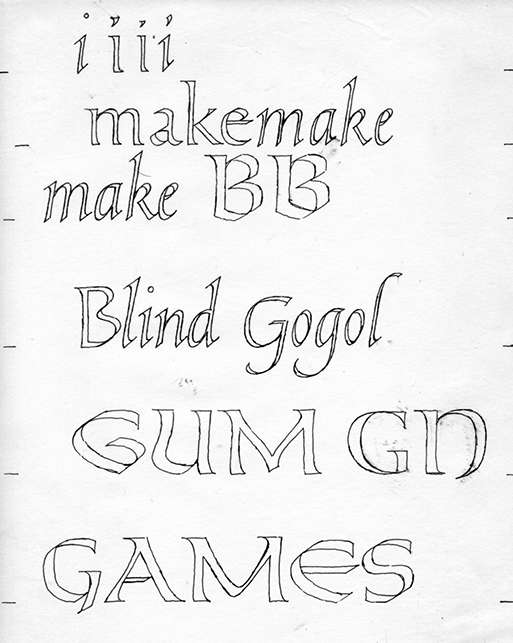 i i i i
makemake
make BB
Blind Gogol
GUM GN
GAMES